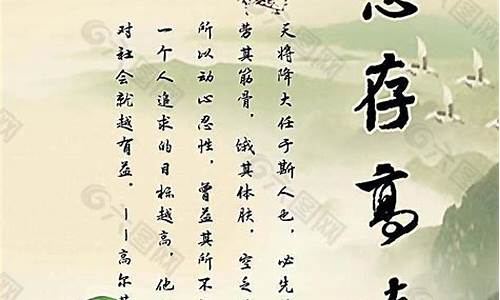 志存高
天将降大任于斯人也，必先
劳其筋骨，饿其体肤，空乏
所以动心忍性，曾益其所不
一个人追求的目标越高，他
对社会就越有益。——高尔基
六图网